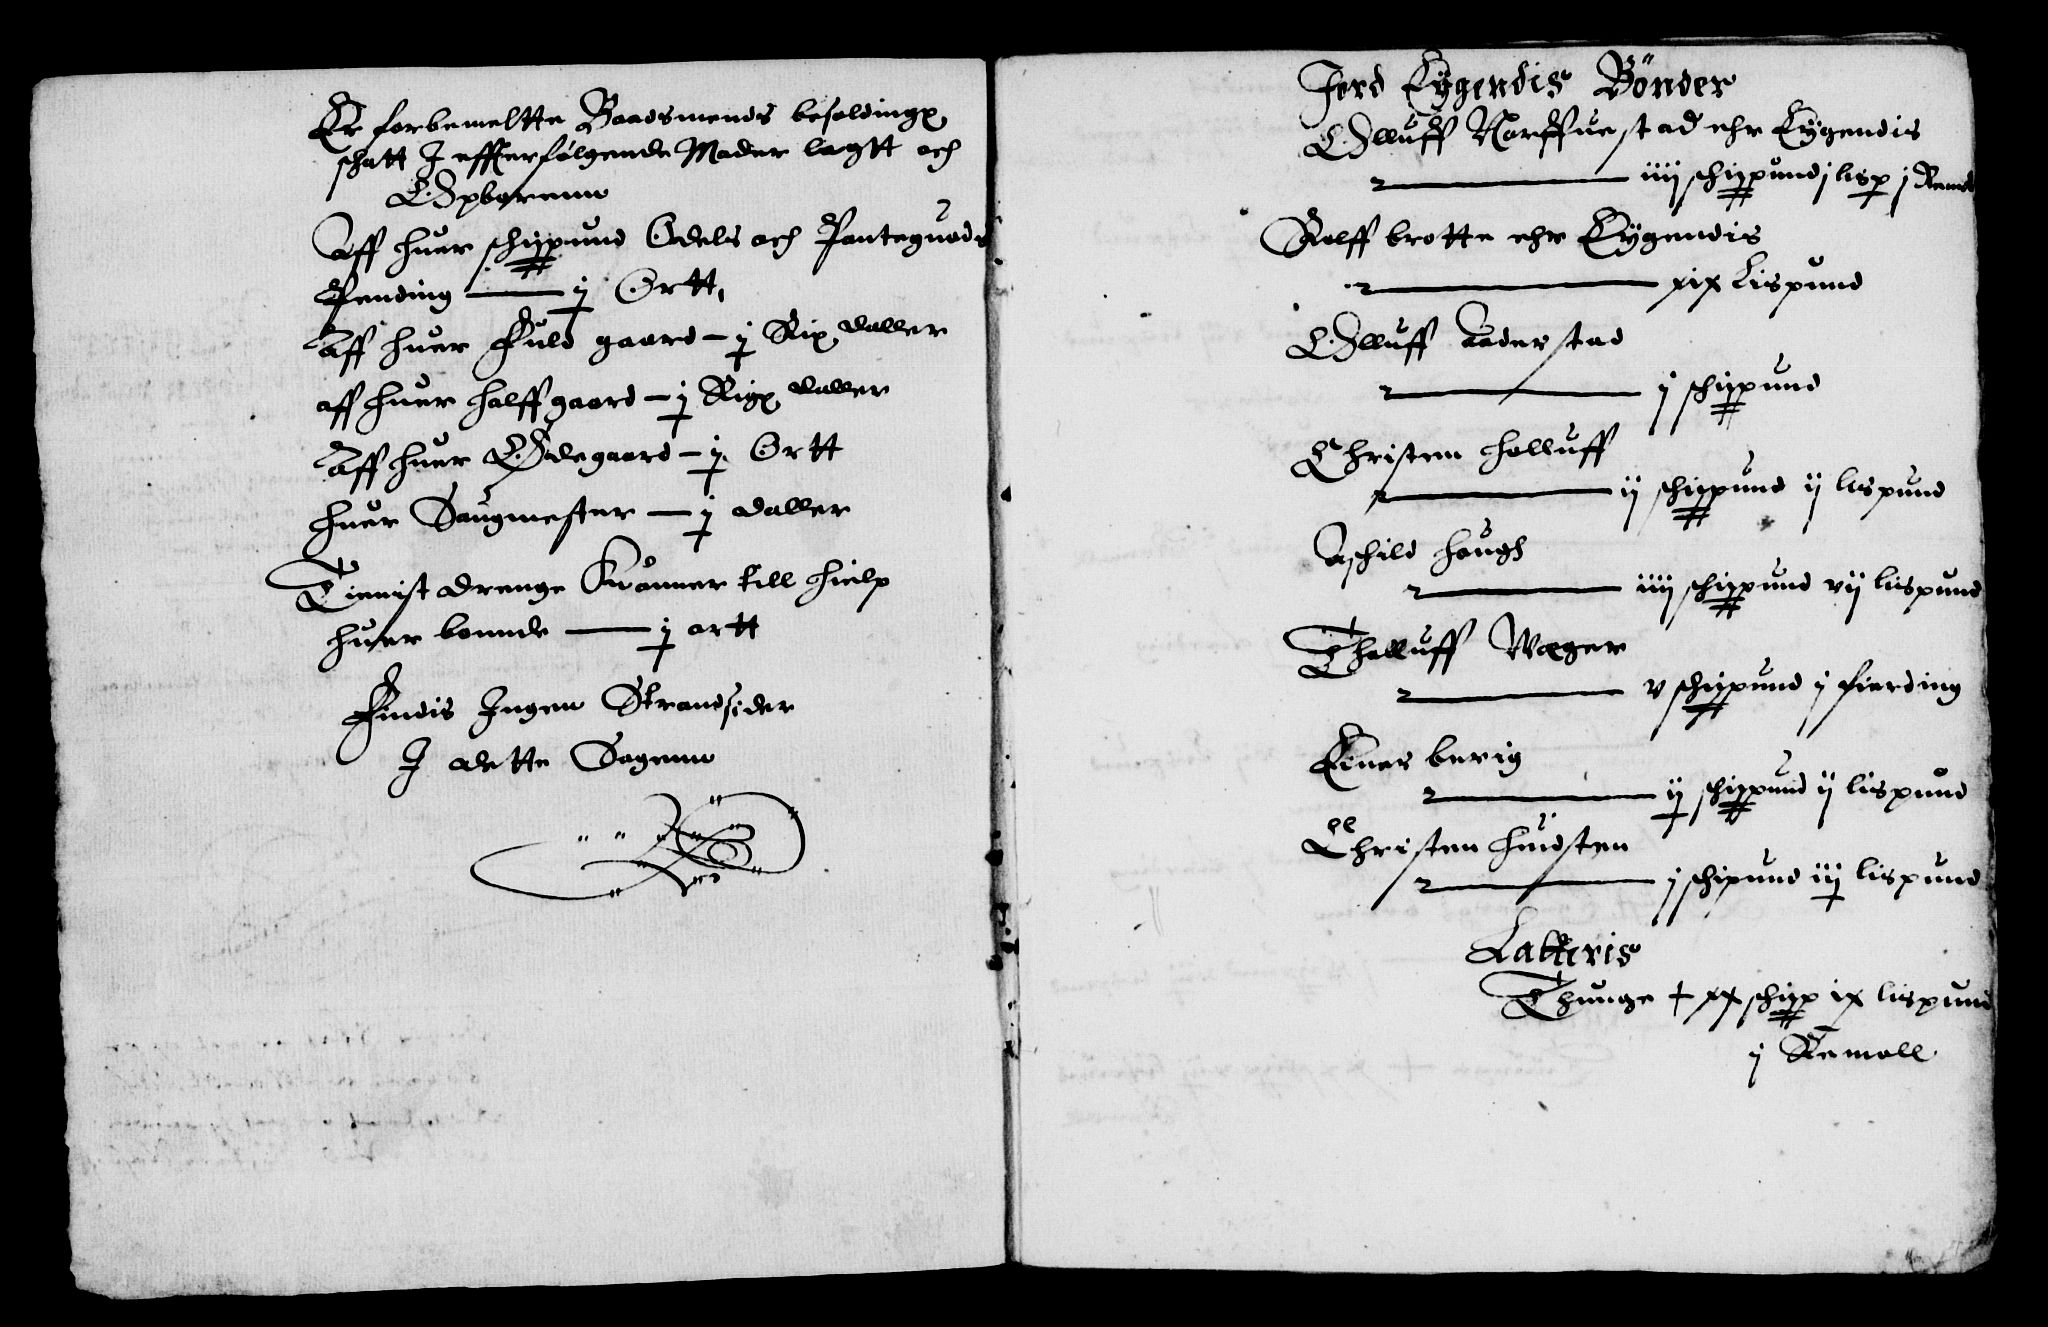 Er forbemeltte Baadsmends besoldings
schatt J effterfølgende Mader lagtt och
Opborenn
Aff huer schippund Odels och Panteguods
Pending — j Ortt,
Aff huer Fuld gaard — j Rix daller
aff huer halff gaard — j Rigx daller
Aff huer Ødegaard — j Ortt
huer Saugmester — j daller
Tienist drenge Kuånner till hielp
huer bonnde — j ortt
Findis Ingen Strandsider
J dette Sogenn
Jord Eÿgendis Bönder
Olluff Norffuestad ehr Eÿgendis
— iiij schippund j lisp j Remol
Rolff brotte ehr Eÿgendis
— xix Lispund
Olluff Aaderstad
— j schippund
Christen Holluff
— ij schippund ij lispund
Aschild Haugh
— iiij schippund vij lispund
Tholluff Wæger
— v schippund j fierding
Einer berig
— ij schippund ij lispund
Christen Huidsten
— j schipund iij lispund
Latteris
Thunge + xx schipp ix lispund
j Remoll